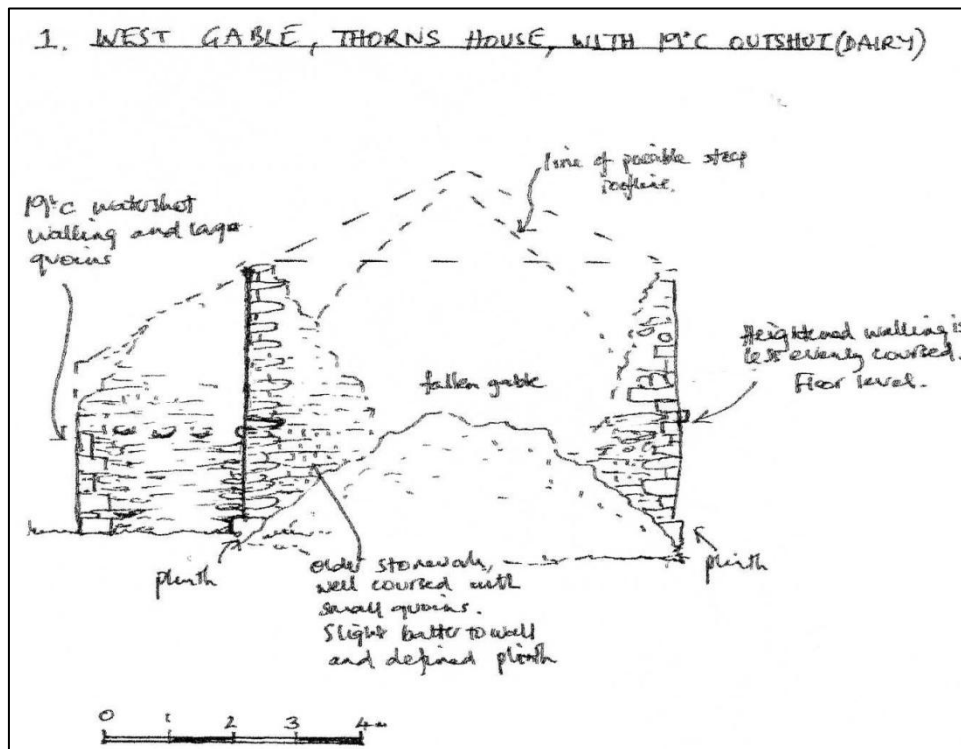 1. WEST GABLE, THORNS HOUSE, WITH 19thC OUTSHUT (DAIRY)
line of possible steep
roofline.
19thC watershot
walling and large
quoins
Heightened walling is
less evenly coursed.
Floor level.
fallen gable
plinth
plinth
older stonework,
well coursed with
small quoins.
Slight batter to wall
and defined plinth
0 1 2 3 4m